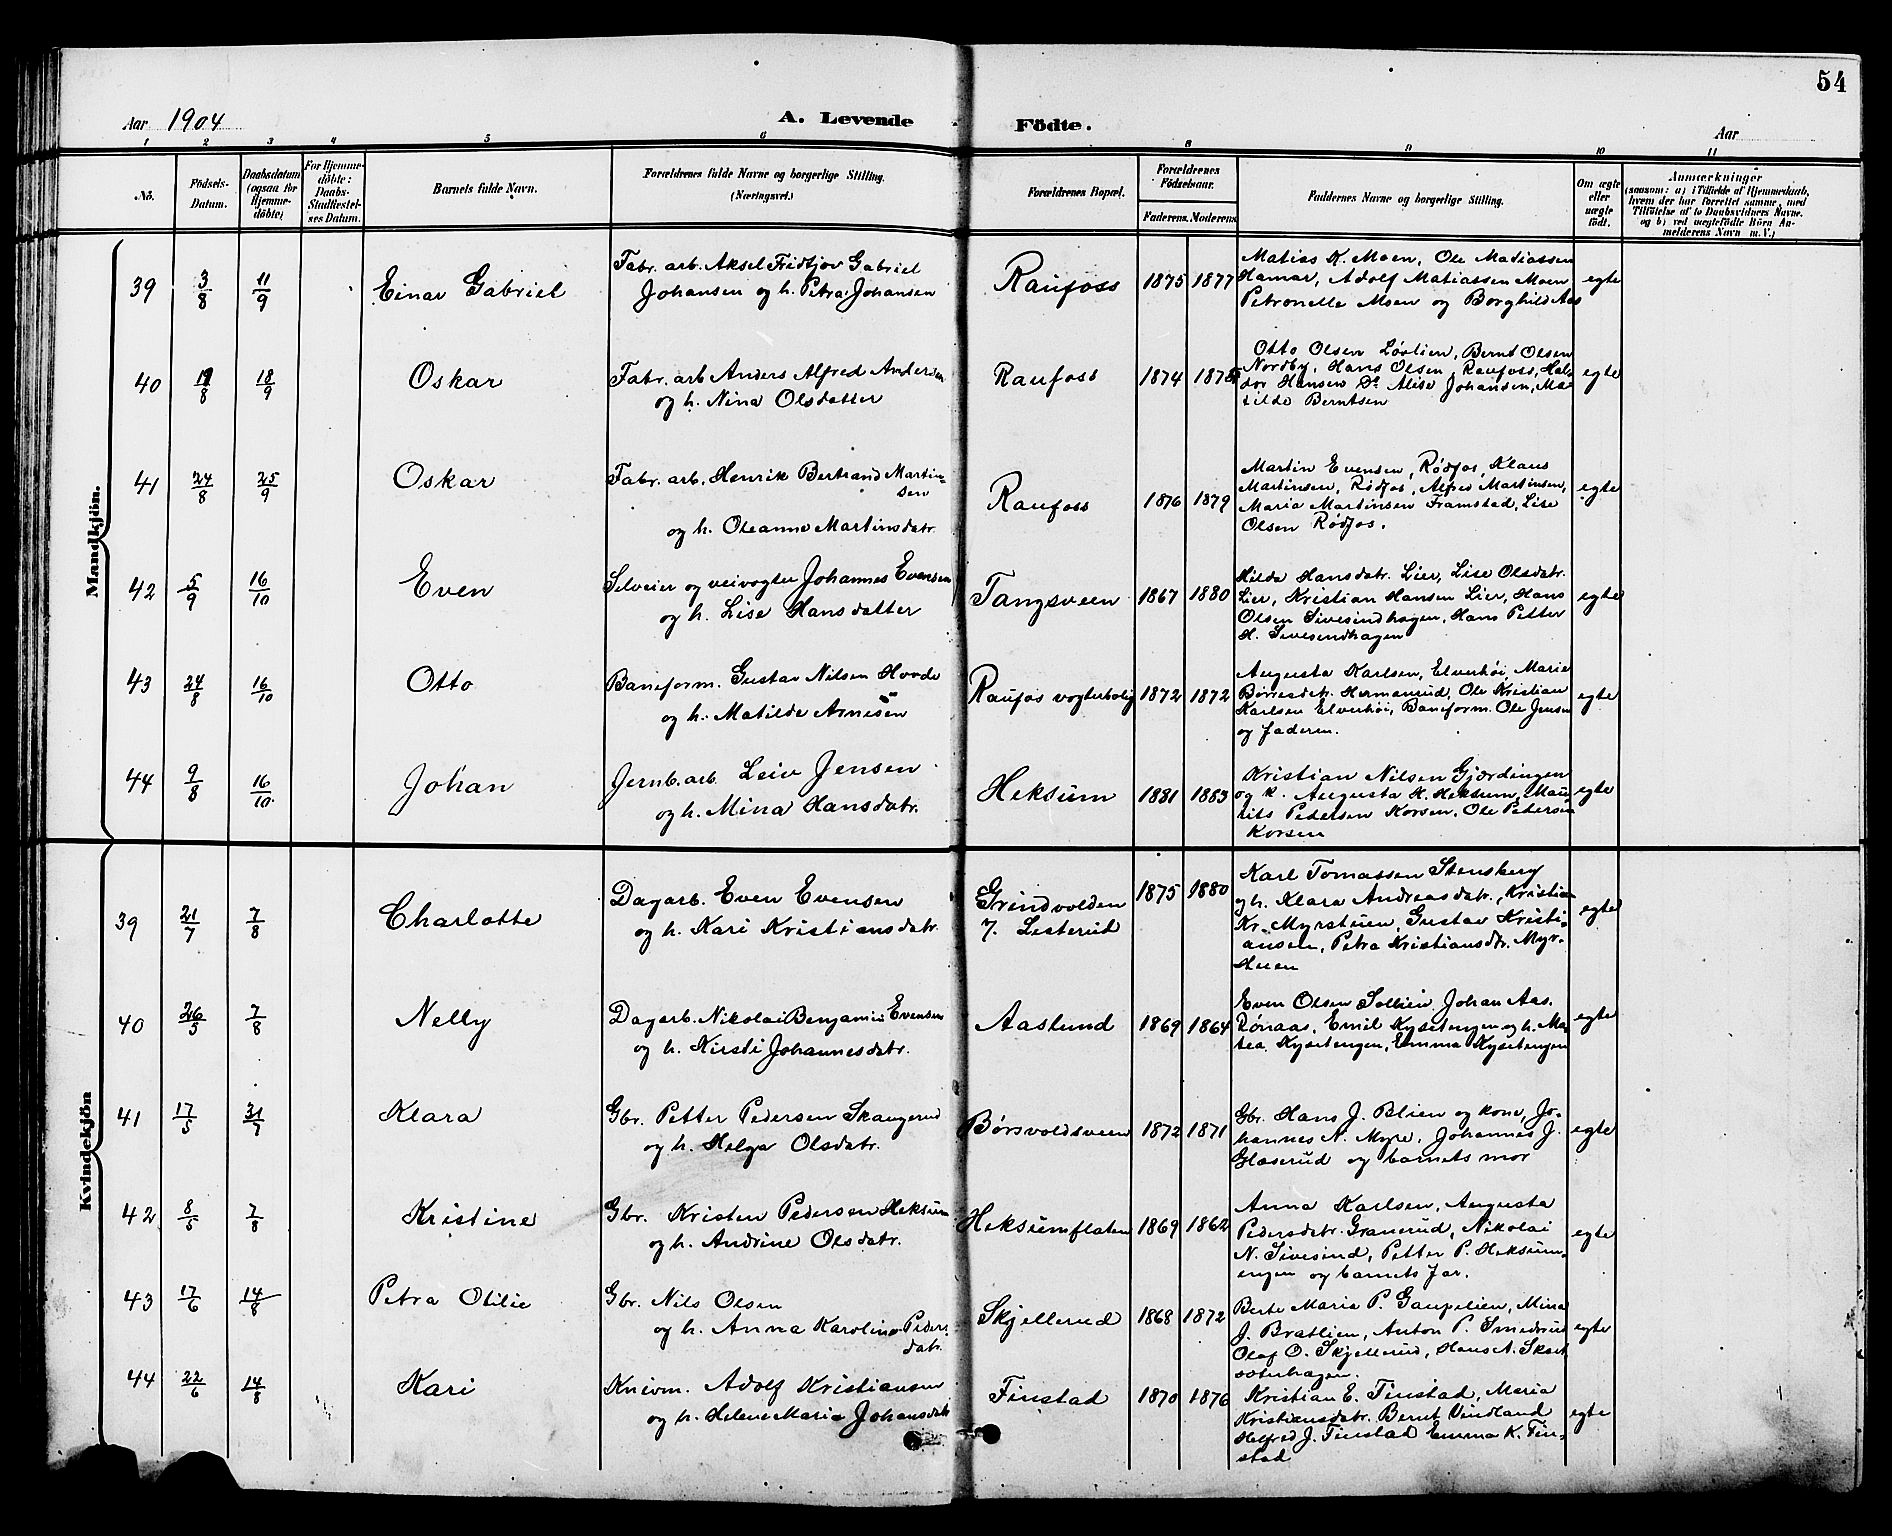 54
Aar 1904 A. Levende Födte. Aar
1 2 3 4 5 6 8 9 10 11
No.
Födsels-
Datum.
Daabsdatum
(ogsaa for
Hjemme-
döbte)
For Hjemme-
döbte:
Daabs-
Stadfæstel-
ses Datum.
Barnets fulde Navn.
Forældrenes fulde Navne og borgerlige Stilling.
(Næringsvei.)
Forældrenes Bopæl.
Forældrenes
Födselsaar.
Faderens. Moderens.
Faddernes Navne og borgerlige Stilling.
Om ægte
eller
uægte
födt.
Anmærkninger
(saasom: a) i Tilfælde af Hjemmedaab,
hvem der har forrettet samme, med
Tilföielse af to Daabsvidners Navne.
og b) ved uægtefödte Börn An-
melderens Navn m. V.)
Mandkjön.
39 3/8 11/9 Einar Gabriel
Fabr. arb. Aksel Fridtjov Gabriel
Johansen og h. Petra Johansen
Raufoss 1875 1877
Matias K. Moen, Ole Matiassen
Hamar, Adolf Matiassen Moen
Petronelle Moen og Borghild Aas
egte
40 18/9 Oskar
Fabr. arb Anders Alfred Andersen
og h. Nina Olsdatter
Raufoss 1874
Otto Olsen Løvlien, Bernt Olsen
Nordby, Hans Olsen Raufoss, Hal-
dor Hansen Do Alise Johansen, Ma-
tilde Berntsen
egte
41 24/8 25/9 Oskar
Fabr. arb. Henrik Bertrand Martin-
sen
og h. Oleanne Martinsdatr.
Raufoss 1876 1879
Martin Evensen, Rødfos, Klaus
Martinsen, Rødfos, Alfred Martinsen,
Maria Martinsen Framstad, Lise
Olsen Rødfos.
egte
42 5/9 16/10 Even
Selveier og veivogter Johannes Evensen
og h. Lise Hansdatter
Tangsveen 1867 1880
Hilda Hansdatr. Lier, Lise Olsdatr.
Lier, Kristian Hansen Lier, Hans
Olsen Sivesindhagen, Hans Petter
H. Sivesindhagen
egte
43 24/8 16/10 Otto
Baneform. Gustav Nilsen Hovde
og h. Matilde Arnesen
Raufos vogterbolig 1872 1872
Augusta Karlsen, Elverhøi, Marie
Børresdtr. Hermanrud, Ole Kristian
Karlsen Elverhøi, Baneform. Ole Jensen
og faderen.
egte
44 9/8 16/10 Johan
Jernb. arb. Leiv Jensen
og h. Mina Hansdatr.
Heksum 1881 1883
Kristian Nilsen Gjærdingen
og k. Augusta H. Heksum, Mau-
rits Pedersen Korsen, Ole Pedersen
Korsen
egte
Kvindekjön
39 21/7 7/8 Charlotte
Dagarb. Even Evensen
og h. Kari Kristiansdatr.
Grindvolden
7. Lesterud
1875 1880
Karl Tomassen Stensberg
og h. Klara Andreasdatr., Kristian
Kr. Myrstuen, Gustav Kristi-
ansen, Petra Kristiansdtr. Myr-
stuen
egte
40 26/5 7/8 Nelly
Dagarb. Nikolai Benjamin Evensen
og h. Kirsti Johannesdatr.
Aaslund 1869 1864
Even Olsen Sollien Johan Aas.
Rønaas, Emil Kysetengen og h. Ma-
tea Kysetengen, Emma Kysetengen
egte
41 17/5 31/7 Klara
Gbr. Petter Pedersen Skangerud
og h. Helga Olsdatr.
Børsvoldsveen 1872 1871
Gbr. Hans J. Blien og kone, Jo-
hannes N. Myre, Johannes J.
Glæserud og barnets mor
egte
42 8/5 7/8 Kristine
Gbr. Kristen Pedersen Heksum
og h. Andrine Olsdatr.
Heksumflaten 1869 1862
Anna Karlsen, Augusta
Pedersdatr. Granerud, Nikolai
N. Sivesind, Petter P. Heksum-
engen og barnets far.
egte
43 17/6 14/8 Petra Otilie
Gbr. Nils Olsen
og h. Anna Karoline Peders-
datr.
Skjellerud 1868 1872
Berte Maria P. Gaupelien, Mina
J. Bratlien, Anton P. Smedsrud
Olaf O. Skjellerud, Hans A. Skart-
soterhagen.
egte
44 22/6 14/8 Kari
Knivm. Adolf Kristiansen
og h. Helene Maria Johansdatr
Finstad 1870 1876
Kristian E. Finstad, Maria
Kristiansdatr. Bernt Vindland
Helfred J. Finstad Emma K. Fin-
stad
egte